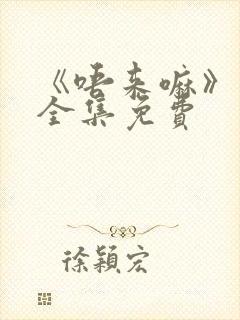 《唔来嘛》
全集免费
徐颖宏